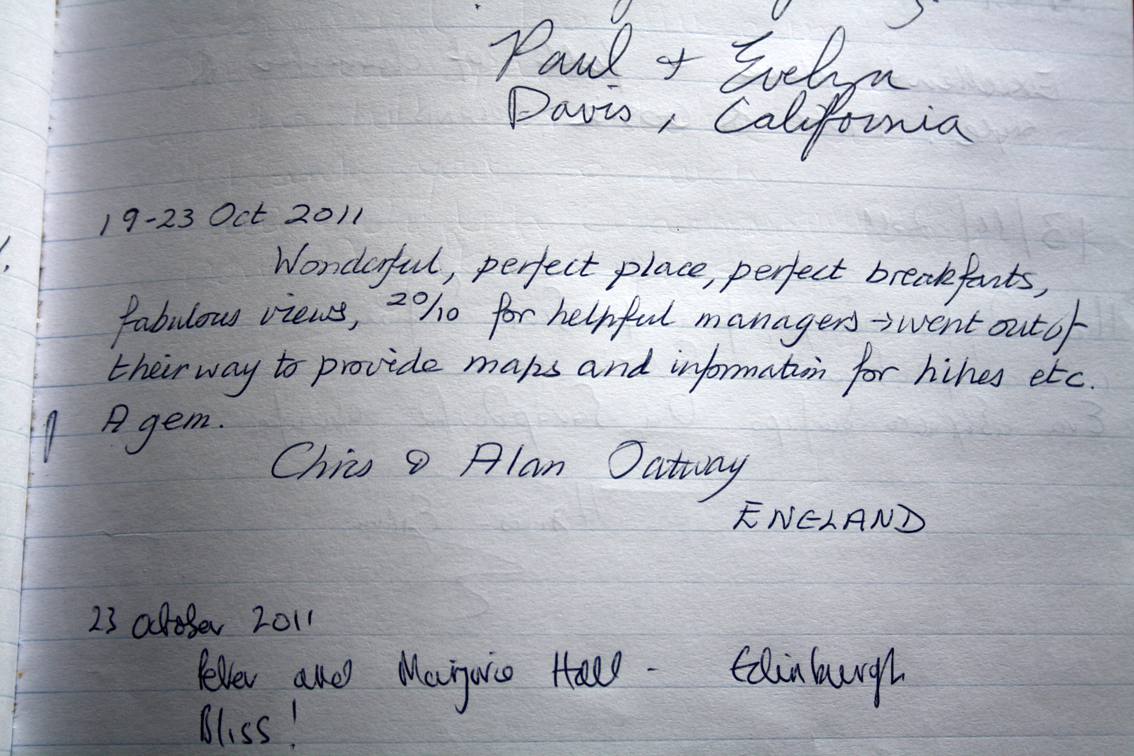 Paul + Evelyn
Davis, California
19-23 Oct 2011
Wonderful, perfect place, perfect breakfasts,
fabulous views, 20/10 for helpful managers → went out of
their way to provide maps and information for hikes etc.
A gem.
Chris & Alan Oatway
ENGLAND
23 October 2011
Peter and Marjorie Hall - Edinburgh
Bliss!